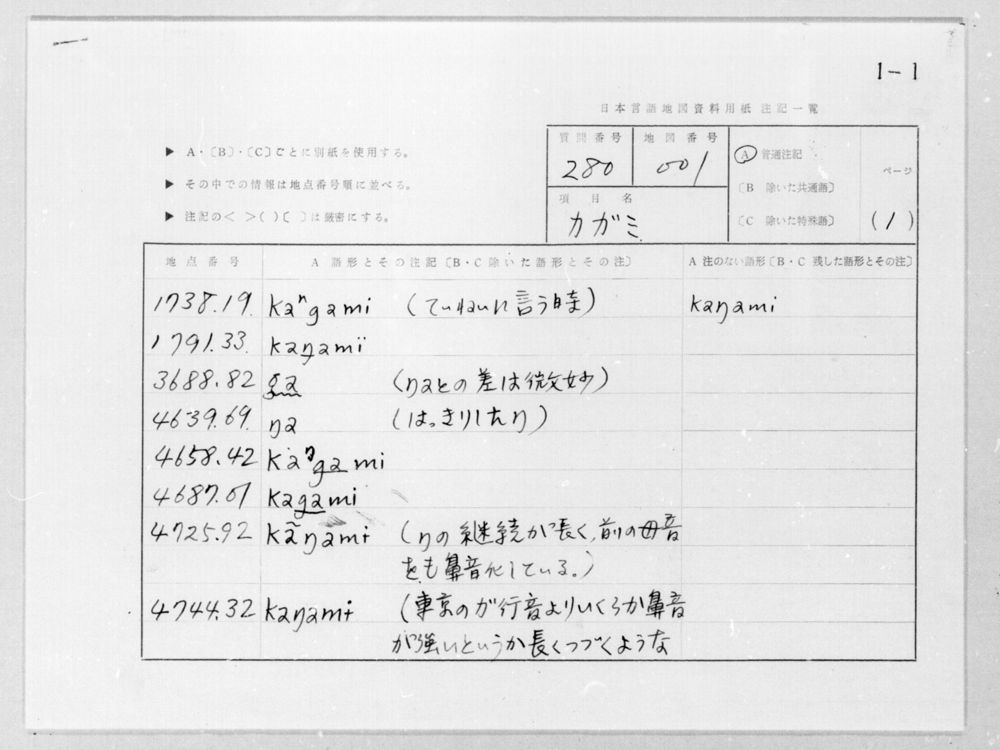 1-1
日本言語地図資料用紙 注記一覧
▶ A・〔B〕・〔C〕ごとに別紙を使用する。
▶ その中での情報は地点番号順に並べる。
▶ 注記の< >( )〔 〕は厳密にする。
質問番号 地図番号
280 001
項目名
カガミ
A 普通注記
〔B 除いた共通語〕
〔C 除いた特殊語〕
ページ
(1)
地点番号 A 語形とその注記〔B・C除いた語形とその注〕 A 注のない語形〔B・C 残した語形とその注〕
1738.19. kaⁿgami (ていねいに言う時) kaŋami
1791.33. kaŋamï
3688.82 ga (ŋaとの差は微妙)
4639.69. ŋa (はっきりしたŋ)
4658.42 kaᵑgami
4687.01 kagami
4725.92 kãŋamɨ (ŋの継続が長く,前の母音
をも鼻音化している。)
4744.32 kaŋamɨ (東京のガ行音よりいくらか鼻音
が強いというか長くつづくような